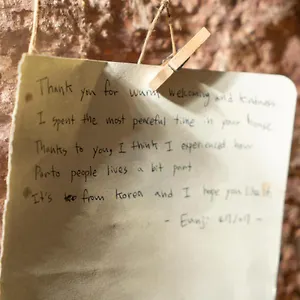 Thank you for warm welcoming and kindness
I spent the most peaceful time in your house.
Thanks to you, I think I experienced how
Porto people lives a bit part
It's from Korea and I hope you like it
- Eunji